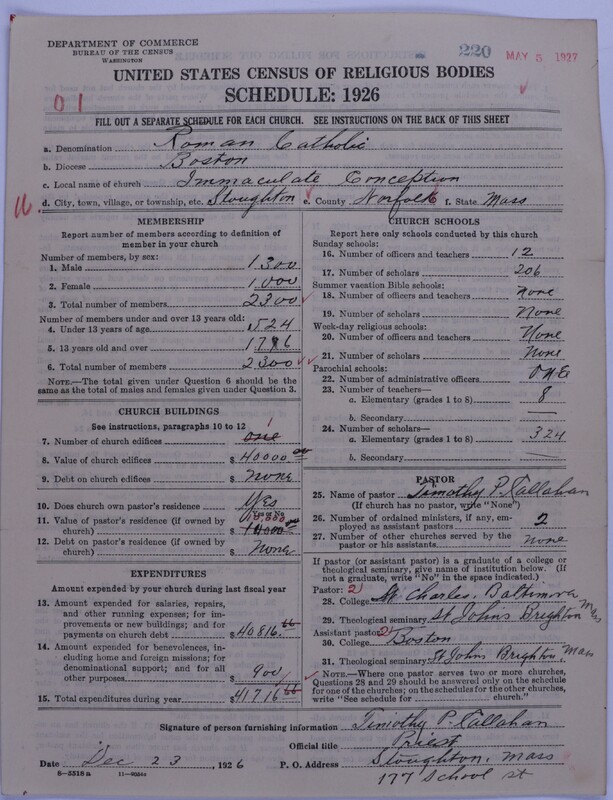 DEPARTMENT OF COMMERCE
BUREAU OF THE CENSUS
WASHINGTON
220
MAY 5 1927
UNITED STATES CENSUS OF RELIGIOUS BODIES
SCHEDULE: 1926
01
FILL OUT A SEPARATE SCHEDULE FOR EACH CHURCH. SEE INSTRUCTIONS ON THE BACK OF THIS SHEET
a. Denomination Roman Catholic
b. Diocese Boston
c. Local name of church Immaculate Conception
d. City, town, village, or township, etc. Stoughton e. County Norfolk f. State Mass
MEMBERSHIP
Report number of members according to definition of
member in your church
Number of members, by sex:
1. Male 1300
2. Female 1,000
3. Total number of members 2300
Number of members under and over 13 years old:
4. Under 13 years of age 524
5. 13 years old and over 1776
6. Total number of members 2300
NOTE.—The total given under Question 6 should be the
same as the total of males and females given under Question 3.
CHURCH BUILDINGS
See instructions, paragraphs 10 to 12
7. Number of church edifices one 1
8. Value of church edifices $ 40000.00
9. Debt on church edifices $ None
10. Does church own pastor's residence Yes
Yes or No
11. Value of pastor's residence (if owned by
church) $ 10,000 00
12. Debt on pastor's residence (if owned by
church) $ None
EXPENDITURES
Amount expended by your church during last fiscal year
13. Amount expended for salaries, repairs,
and other running expenses; for im-
provements or new buildings; and for
payments on church debt $ 40816.66
14. Amount expended for benevolences, in-
cluding home and foreign missions; for
denominational support; and for all
other purposes $ 900
15. Total expenditures during year $ 41716 66
CHURCH SCHOOLS
Report here only schools conducted by this church
Sunday schools:
16. Number of officers and teachers 12
17. Number of scholars 206
Summer vacation Bible schools:
18. Number of officers and teachers None
19. Number of scholars None
Week-day religious schools:
20. Number of officers and teachers None
21. Number of scholars None
Parochial schools:
22. Number of administrative officers ONE
23. Number of teachers—
a. Elementary (grades 1 to 8) 8
b. Secondary
24. Number of scholars—
a. Elementary (grades 1 to 8) 324
b. Secondary
PASTOR
25. Name of pastor Timothy P. Callahan
(If church has no pastor, write "None")
26. Number of ordained ministers, if any, em-
ployed as assistant pastors 2
27. Number of other churches served by the
pastor or his assistants None
If pastor (or assistant pastor) is a graduate of a college or
theological seminary, give name of institution below. (If
not a graduate, write "No" in the space indicated.)
Pastor: 21
28. College St. Charles, Baltimore
29. Theological seminary St Johns Brighton Mass
Assistant pastor: 21
30. College Boston
31. Theological seminary St Johns Brighton, Mass
NOTE.—Where one pastor serves two or more churches,
Questions 28 and 29 should be answered only on the schedule
for one of the churches; on the schedules for the other churches,
write "See schedule for church."
Signature of person furnishing information Timothy P. Callahan
Official title Priest
Date Dec 23, 1926 P. O. Address Stoughton, Mass
177 School st
8—5518 a